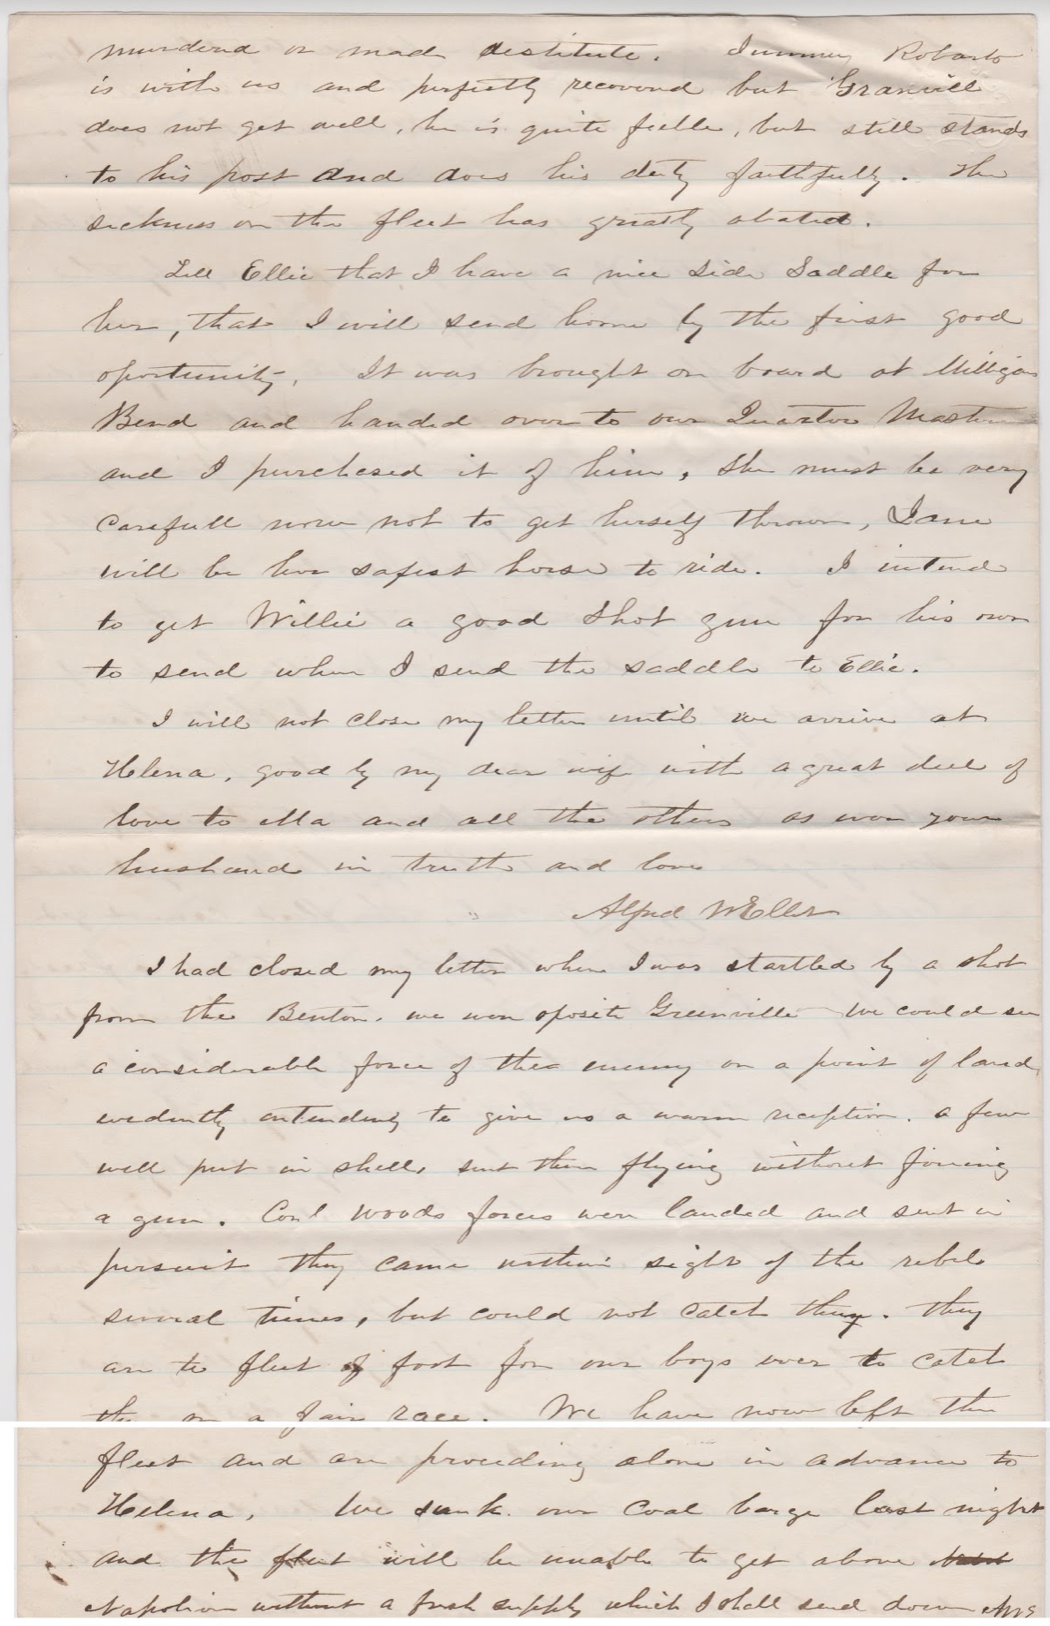 murdered or made destitute. Jimmy Roberts
is with us and perfectly recovered but Granvill
does not get well, he is quite feeble, but still stands
to his post and does his duty faithfully. The
sickness on the fleet has greatly abated.
Tell Ellie that I have a nice Side Saddle for
her, that I will send home by the first good
oportunity, It was brought on board at Milligans
Bend and handed over to our Quarter Master
and I purchesed it of him, She must be very
carefull now not to get herself thrown, Jane
will be her safest horse to ride. I intend
to get Willie a good Shot gun for his own
to send when I send the saddle to Ellie.
I will not close my letter until we arrive at
Helena, good by my dear wife with a great deel of
love to Ma and all the others as ever your
husband in truth and love
Alfred W Ellet
I had closed my letter when I was startled by a shot
from the Benton. we wer oposite Greenville We could see
a considerable force of the enemy on a point of land,
evedently intending to give us a warm reception. a few
well put in shells sent them flying without firing
a gun. Conl Woods forces were landed and sent in
pursuit they came within sight of the rebels
several times, but could not catch they. they
are to fleet of foot for our boys ever to catch
the in a fair race. We have now left the
fleet and are proceeding alone in advance to
Helena, We sunk our Coal barge last night
and the fleet will be unable to get above
Napolion without a fresh supply which I shall send down